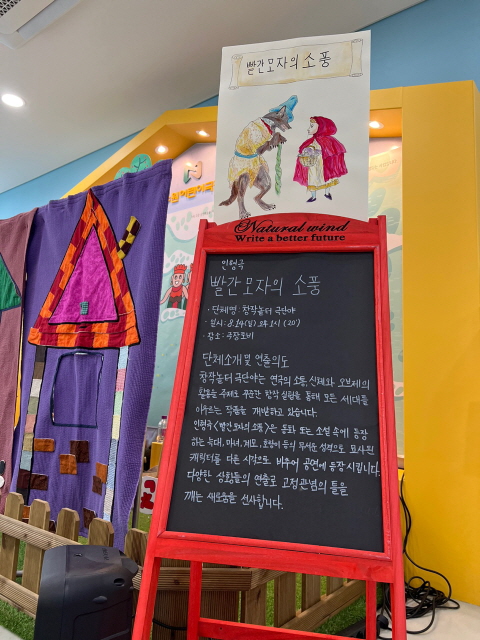 빨간모자의 소풍
Natural wind
Write a better future
인형극
빨간모자의 소풍
· 단체명 : 창작놀터 극단야
· 일시 : 8.24(일) 오후1시 (20')
· 장소 : 극장로비
단체소개 및 연출의도
창작놀터 극단야는 연극의 소통, 신체와 오브제의
활용을 주제로 꾸준한 창작 실험을 통해 모든 세대를
아우르는 작품을 개발하고 있습니다.
인형극 <빨간모자의 소풍>은 동화 또는 소설 속에 등장
하는 늑대, 마녀, 계모, 호랑이 등의 무서운 성격으로 묘사된
캐릭터를 다른 시각으로 비추어 공연에 등장 시킵니다.
다양한 상황들의 연출로 고정관념의 틀을
깨는 새로움을 선사합니다.